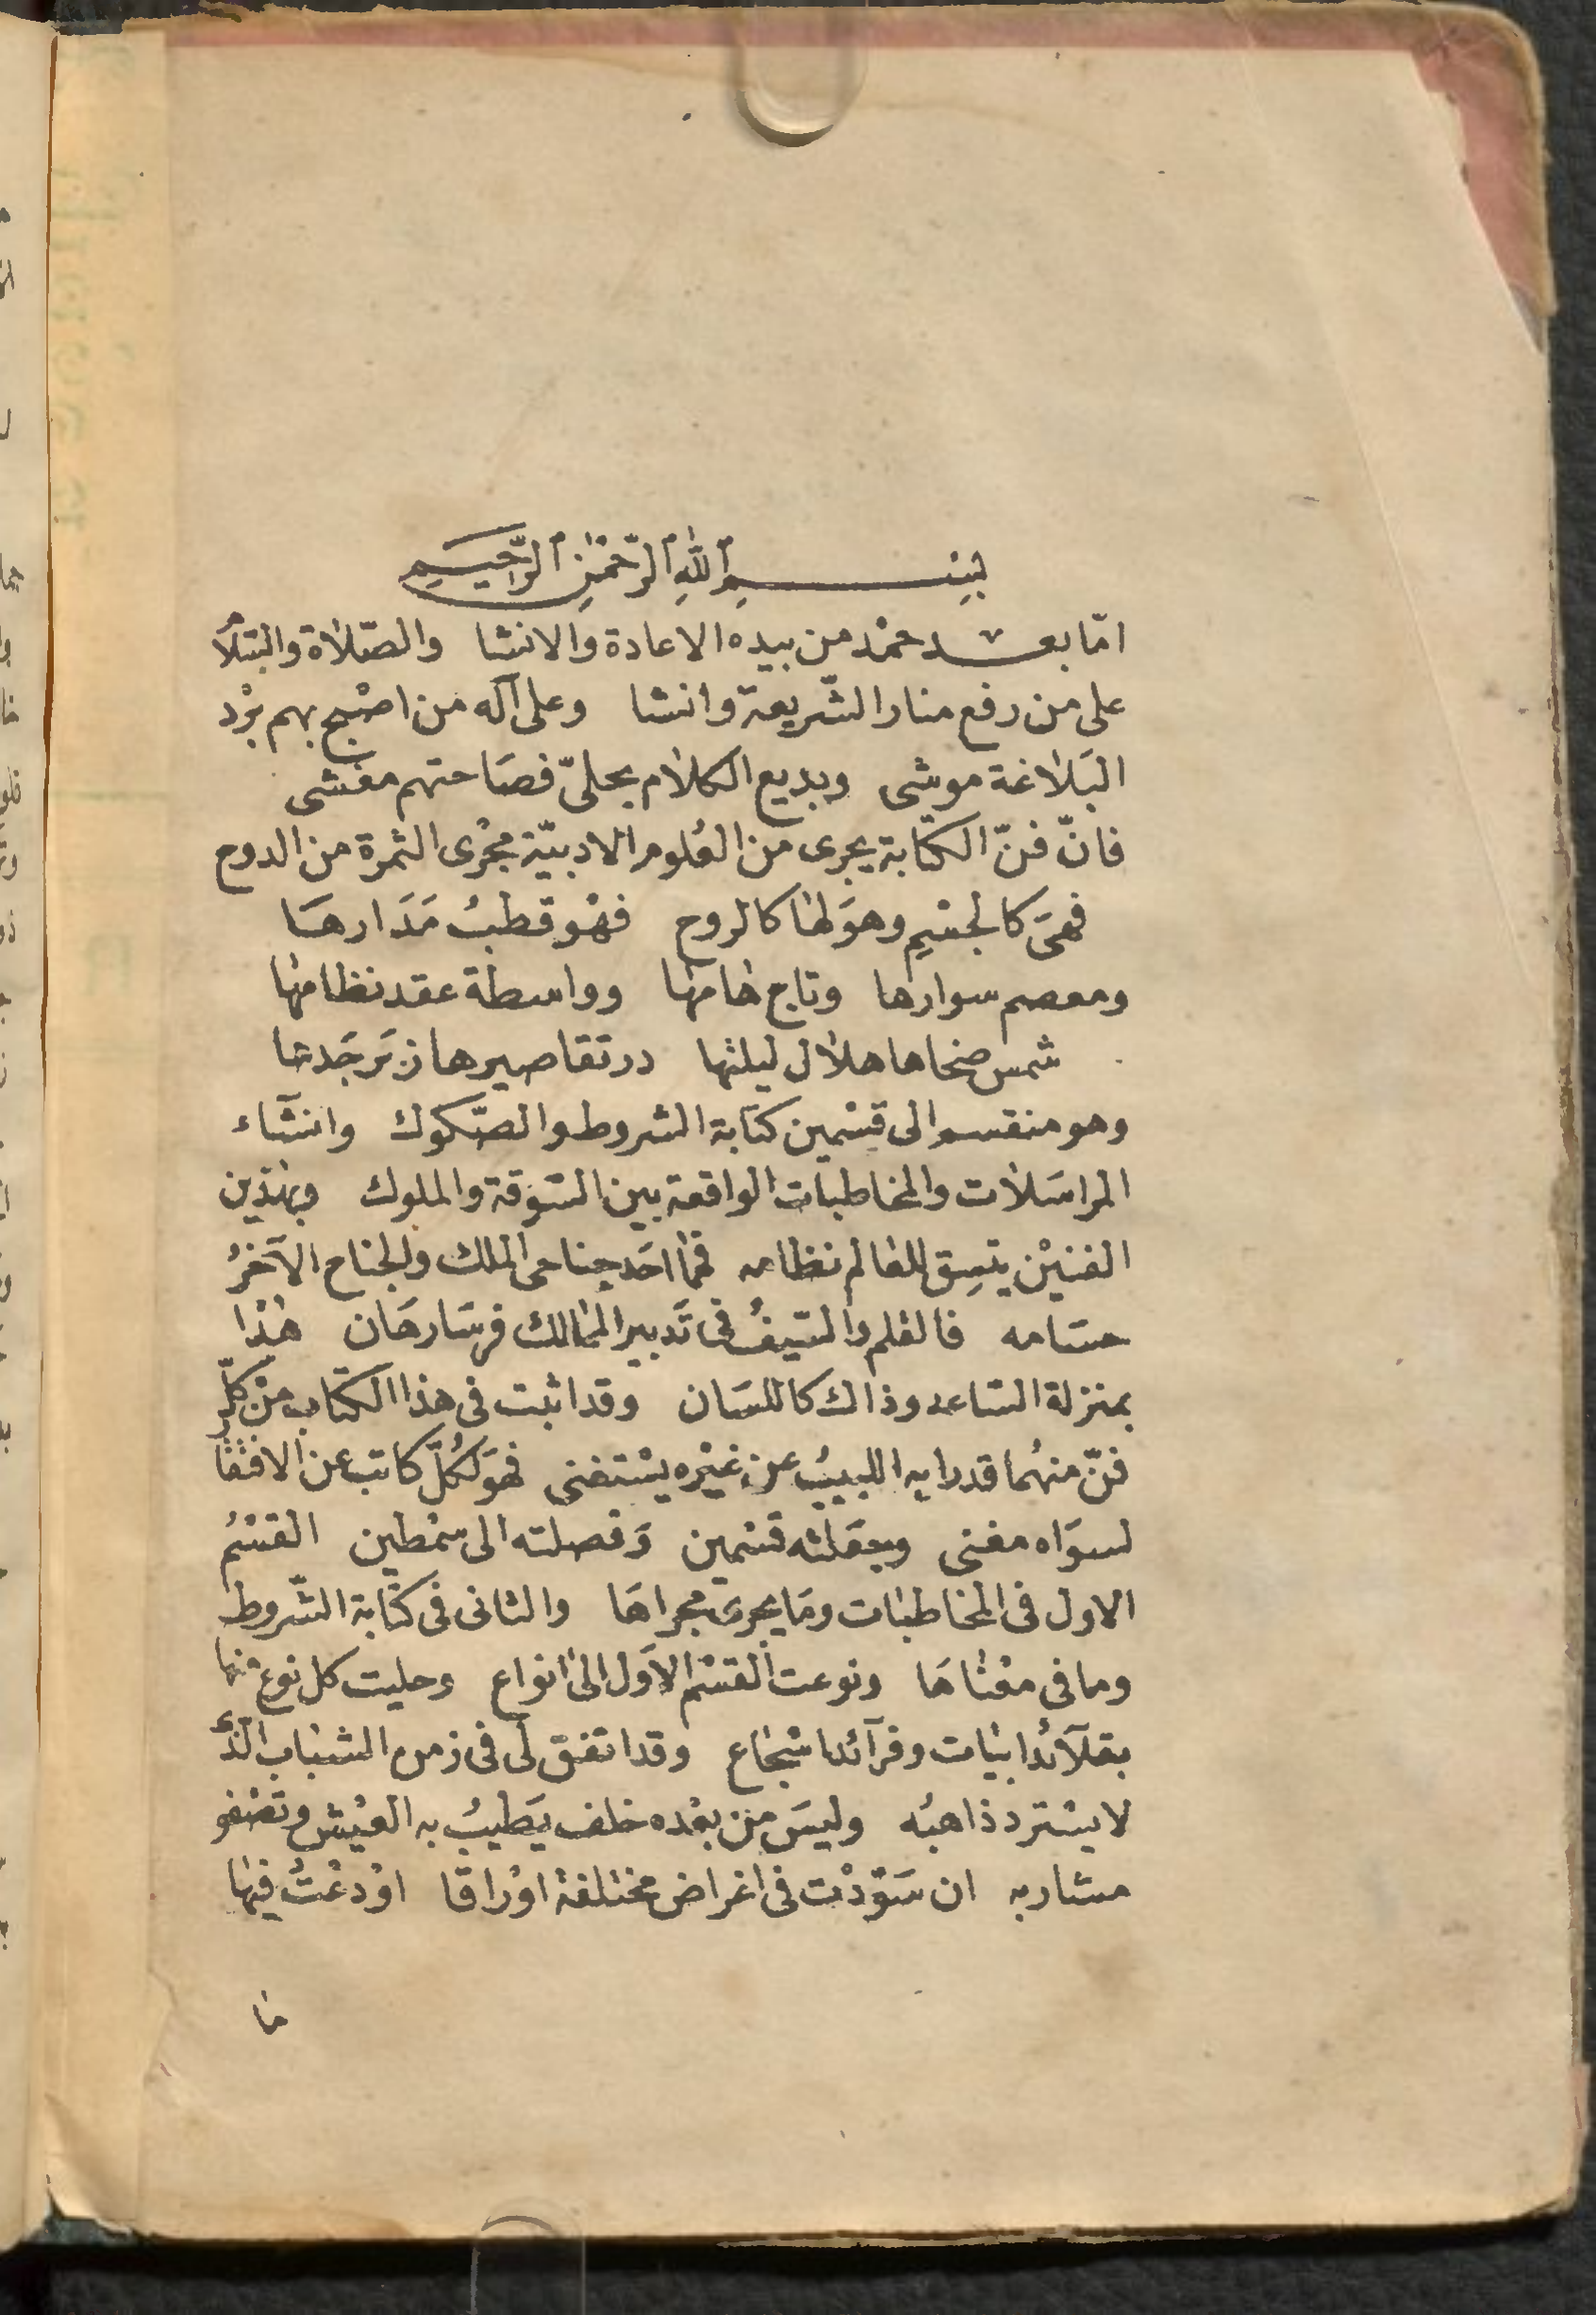 بسم الله الرحمن الرحيم
امّا بعد حمد من بيده الاعادة والانشا والصّلاة والسّلام
على من رفع منار الشّريعة وانشا وعلى آله من اصبح بهم برْد
البَلاغة موشى وبديع الكلام بحلىّ فصَاحتهم مغشى
فانّ فنّ الكتابة يجرى من العُلوم الادبيّة مجْرى الثمرة من الدوح
فهىَ كالجسْمِ وهوَ لها كالروح فهْو قطبُ مَدَارهَا
ومعصم سوارها وتاج هامتها وواسطة عقد نظامها
شمس ضحاها هلال ليلتها در تقاصيرها زبَرجَدتها
وهو منقسم الى قسْمين كتابة الشروط والصّكوك وانشآء
المراسَلات والمخاطبات الواقعة بين السّوقة والملوك وبهذين
الفنيْن يتسِق للعالم نظامه فهما احَد جناحى الملك والجناح الآخرُ
حسَامه فالقلم والسّيفُ فى تَدبير الممالك فرسَا رهَان هذا
بمنزلة السّاعد وذاك كاللسَان وقد اثبت فى هذا الكتاب منْ كلّ
فنّ منهُما قدرا به اللبيبُ عن غيْره يسْتغنى فهوَ لكُلّ كاتب عن الافتقا
لسوَاه مغنى وجعَلته قسْمين وَفصلته الى سمْطين القسْمُ
الاول فى المخاطبات ومَا يجرى مجراهَا والثانى فى كتابة الشّروط
وما فى معْناهَا ونوعت القسْم الاَول الى انواع وحليت كل نوع منها
بقلآئد ابيات وفرآئد اسْجاع وقد اتفق لى فى زمن الشباب الّذى
لا يسْترد ذاهبُه وليسَ من بعْده خلف يَطيبُ به العيْش وتصْفو
مشاربه ان سَوّدْت فى اغراض مختلفة اوْراقا اوْدعْتُ فيها
ما